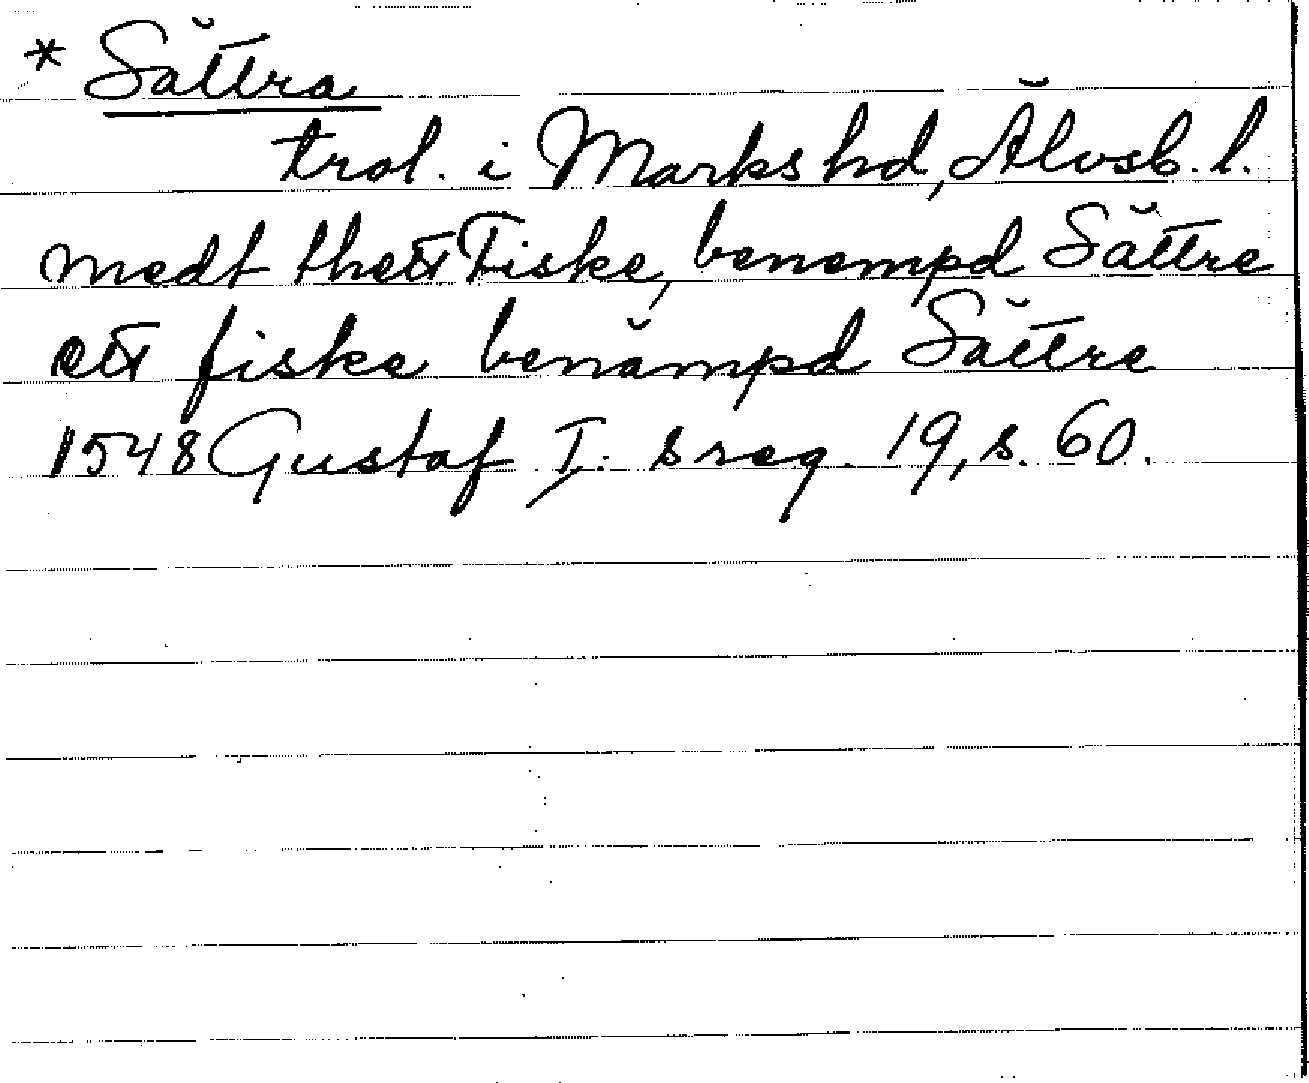 * Sättra
trol. i Marks hd, Älvsb. l.
medt thett Fiske, benempd Sättre
ett fiske benämpd Sättre
1548 Gustaf I:s reg. 19, s. 60.